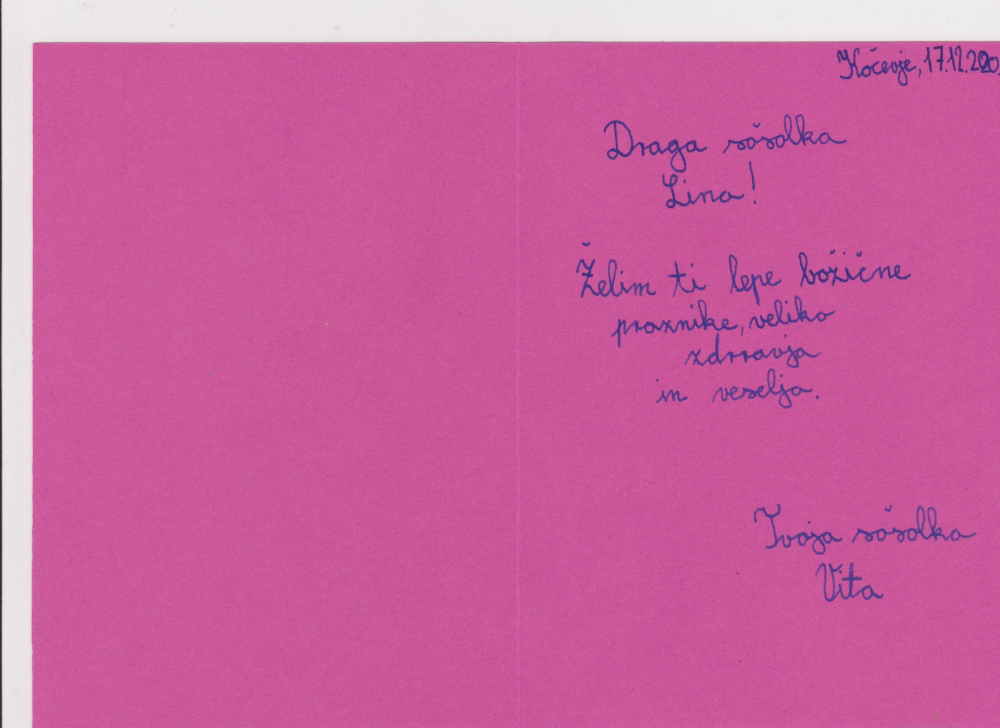 Kočevje, 17.12.2020
Draga sošolka
Lina!
Želim ti lepe božične
praznike, veliko
zdravja
in veselja.
Tvoja sošolka
Vita